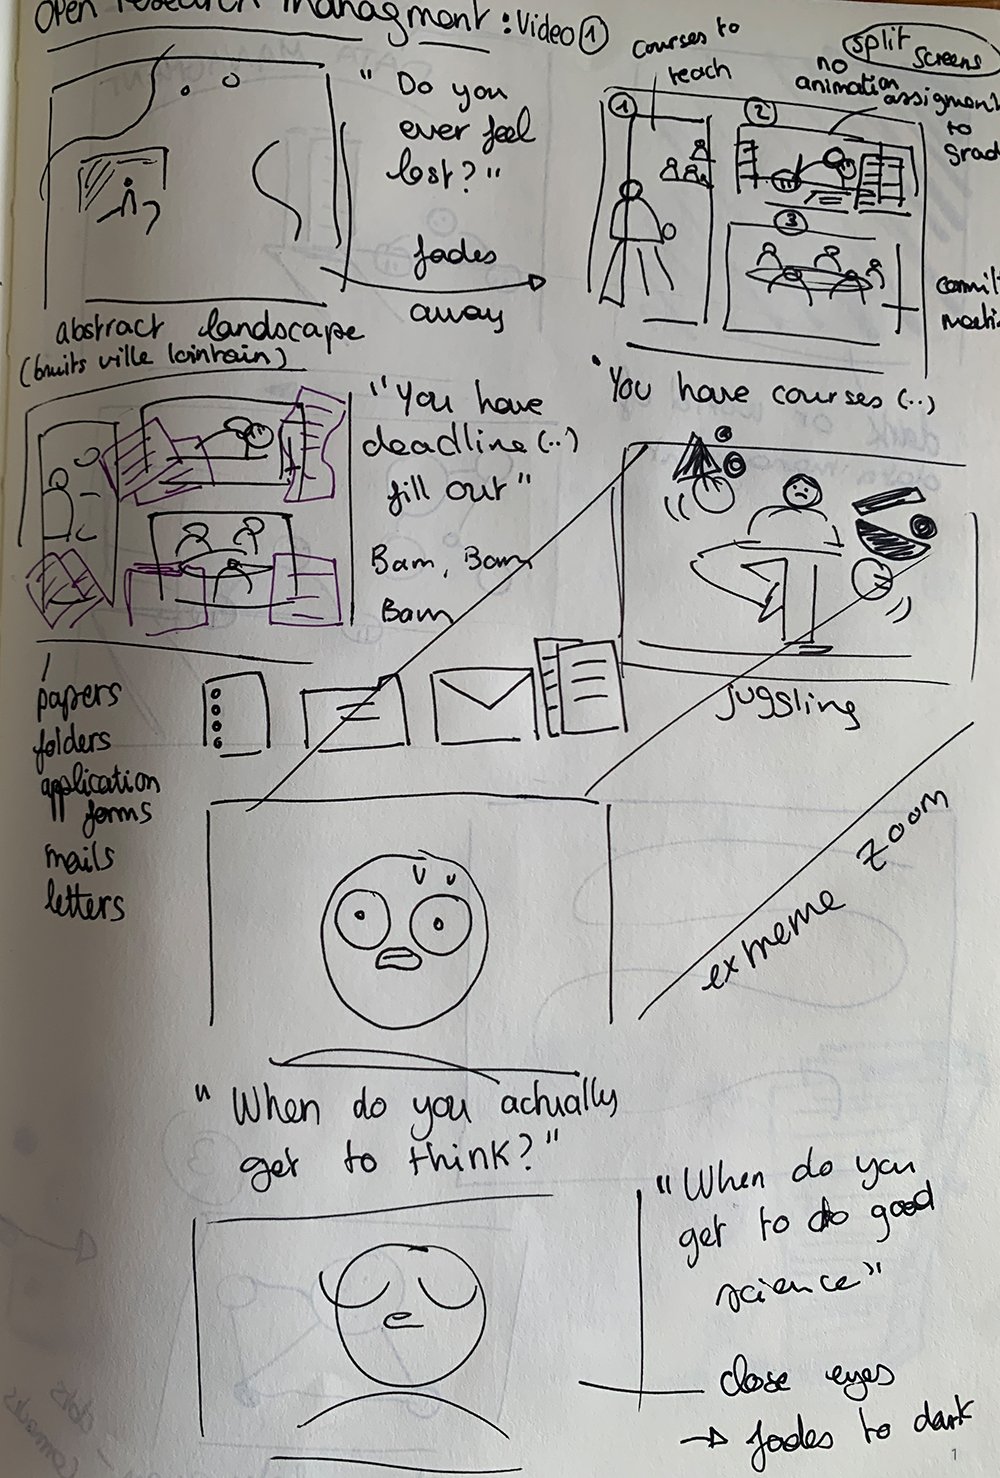 Open research Managment : Video ①
"Do you
ever feel
lost?"
fades
away
abstract landscape
(bruits ville lointain)
courses to
teach
split
screens
no
animation
assigment
to
grad
①
②
③
"You have courses (..)
"You have
deadline (..)
fill out"
Bam, Bam
Bam
juggling
papers
folders
application
forms
mails
letters
extreme zoom
"When do you actually
get to think?"
"When do you
get to do good
science"
close eyes
→ fades to dark
1